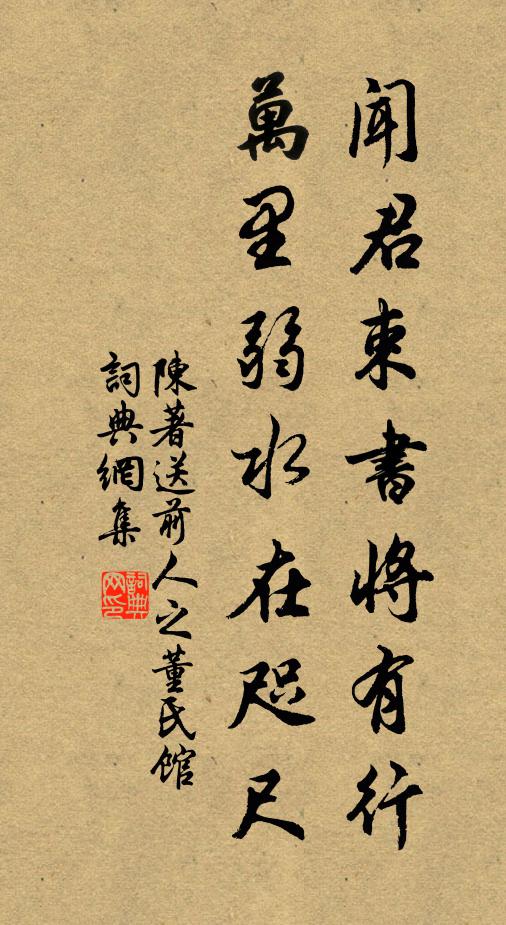 聞君束書將有行
萬里弱水在咫尺
陳著送前人之董氏館
詞典網集
詞典網印